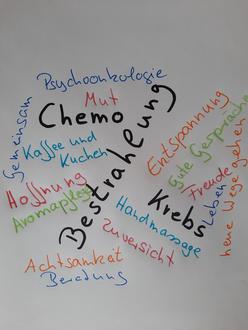 Psychoonkologie
Gemeinsam
Mut
Chemo
Kaffee und
Kuchen
Bestrahlung
Entspannung
Gute Gespräche
Hoffnung
Aromapflege
Freude
Leben
neue Wege gehen
Krebs
Handmassage
Zuversicht
Achtsamkeit
Beratung